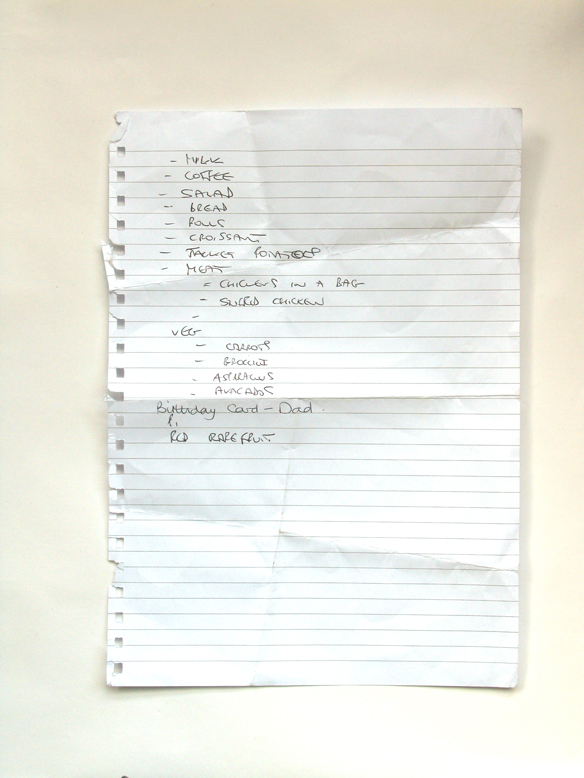 - MILK
- COFFEE
- SALAD
- BREAD
- ROLLS
- CROISSANT
- JACKET POTATOES
- MEAT
- CHICKENS IN A BAG
- SLICED CHICKEN
-
VEG
- CARROTS
- BROCCLI
- ASPIRAGUS
- AVACADOS
Birthday Card - Dad.
RED GRAPEFRUIT